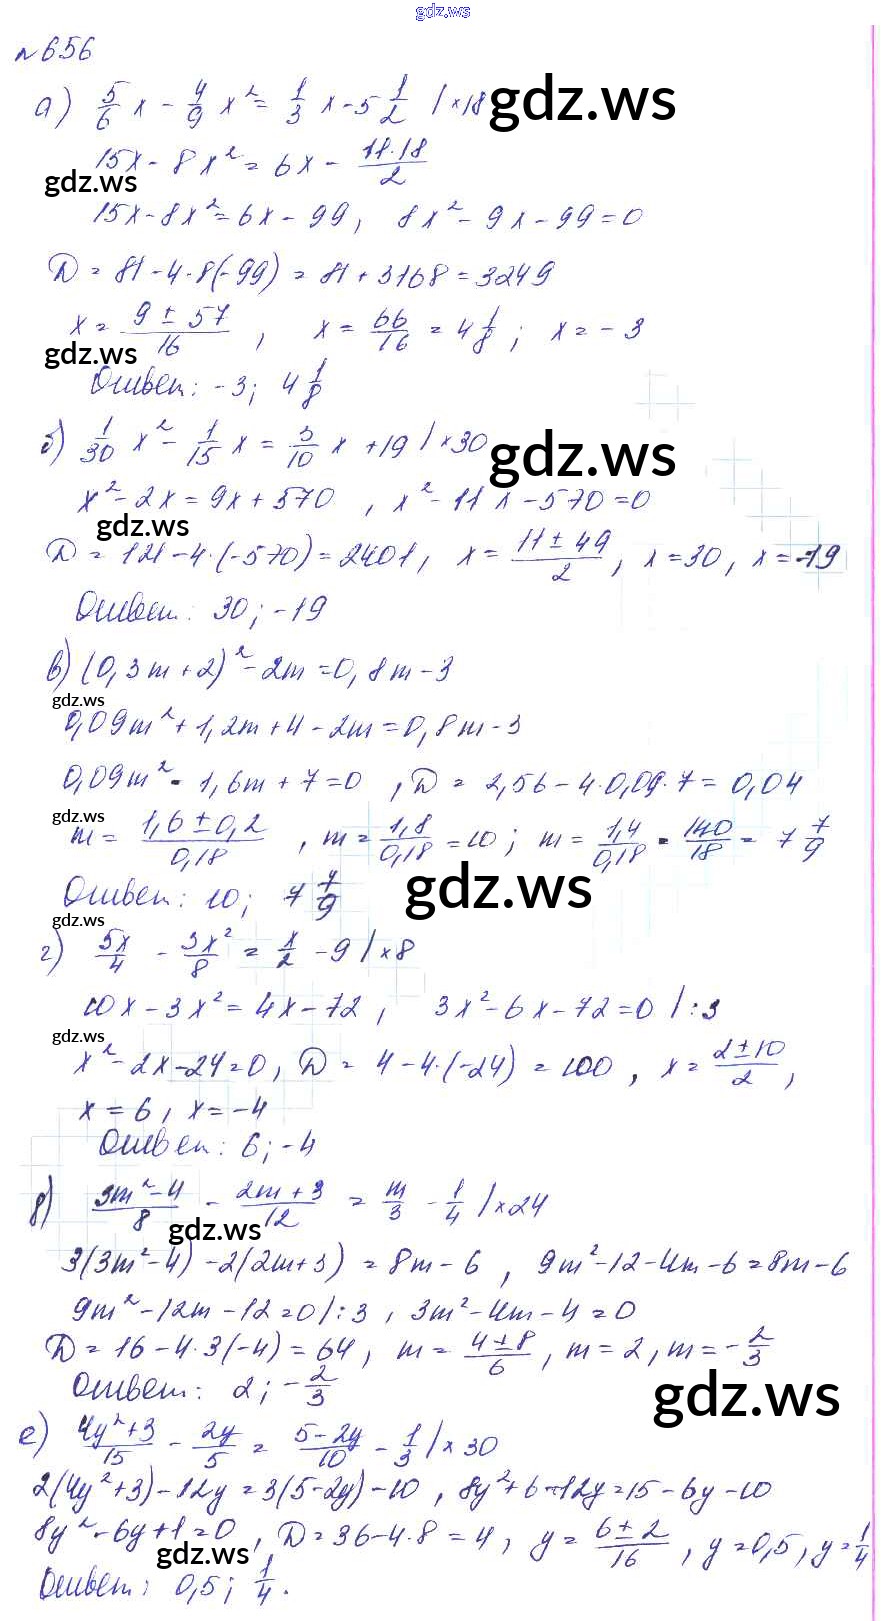 gdz.ws
№656
а) 5/6 x - 4/9 x² = 1/3 x - 5 1/2 | ×18 gdz.ws
15x - 8x² = 6x - 11·18/2
gdz.ws
15x - 8x² = 6x - 99, 8x² - 9x - 99 = 0
D = 81 - 4·8(-99) = 81 + 3168 = 3249
x = 9 ± 57/16, x = 66/16 = 4 1/8; x = -3
gdz.ws
Ответ: -3; 4 1/8
б) 1/30 x² - 1/15 x = 3/10 x + 19 | ×30 gdz.ws
x² - 2x = 9x + 570, x² - 11x - 570 = 0
gdz.ws
D = 121 - 4·(-570) = 2401, x = 11 ± 49/2, x = 30, x = -19
Ответ: 30; -19
в) (0,3m + 2)² - 2m = 0,8m - 3
gdz.ws
0,09m² + 1,2m + 4 - 2m = 0,8m - 3
0,09m² - 1,6m + 7 = 0, D = 2,56 - 4·0,09·7 = 0,04
gdz.ws
m = 1,6 ± 0,2/0,18, m = 1,8/0,18 = 10; m = 1,4/0,18 = 140/18 = 7 7/9
Ответ: 10; 7 7/9 gdz.ws
gdz.ws
г) 5x/4 - 3x²/8 = x/2 - 9 | ×8
10x - 3x² = 4x - 72, 3x² - 6x - 72 = 0 | :3
gdz.ws
x² - 2x - 24 = 0, D = 4 - 4·(-24) = 100, x = 2 ± 10/2,
x = 6, x = -4
Ответ: 6; -4
д) 3m² - 4/8 - 2m + 3/12 = m/3 - 1/4 | ×24
gdz.ws
3(3m² - 4) - 2(2m + 3) = 8m - 6, 9m² - 12 - 4m - 6 = 8m - 6
9m² - 12m - 12 = 0 | :3, 3m² - 4m - 4 = 0
D = 16 - 4·3(-4) = 64, m = 4 ± 8/6, m = 2, m = -2/3
Ответ: 2; -2/3 gdz.ws
е) 4y² + 3/15 - 2y/5 = 5 - 2y/10 - 1/3 | ×30
2(4y² + 3) - 12y = 3(5 - 2y) - 10, 8y² + 6 - 12y = 15 - 6y - 10
8y² - 6y + 1 = 0, D = 36 - 4·8 = 4, y = 6 ± 2/16, y = 0,5, y = 1/4
gdz.ws
Ответ: 0,5; 1/4. gdz.ws